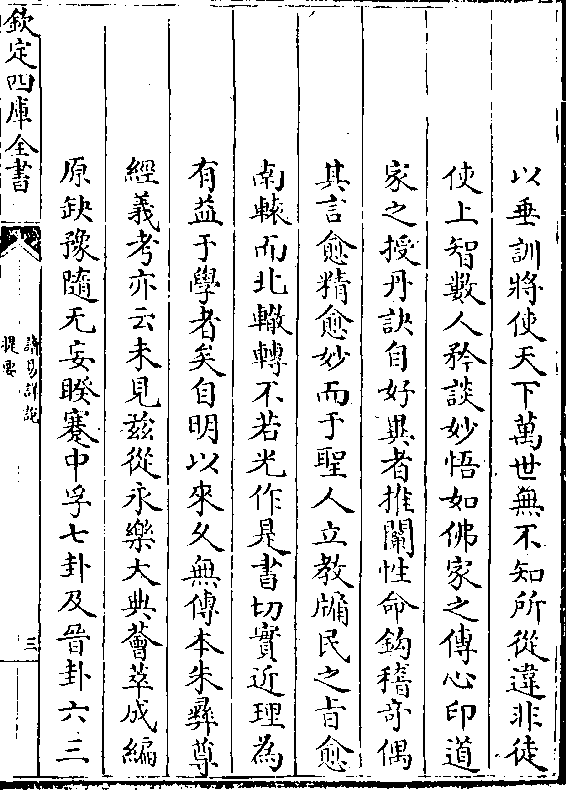 以垂訓將使天下萬世無不知所從違非徒
使上智數人矜談妙悟如佛家之傳心印道
家之授丹訣自好異者推闡性命鈎稽奇偶
其言愈精愈妙而于聖人立教牖民之旨愈
南轅而北轍轉不若光作是書切實近理為
有益于學者矣自明以來久無傳本朱彞尊
經義考亦云未見兹從永樂大典薈萃成編
原缺豫隨无妄睽蹇中孚七卦及晉卦六三
欽定四庫全書
讀易詳說
提要
三